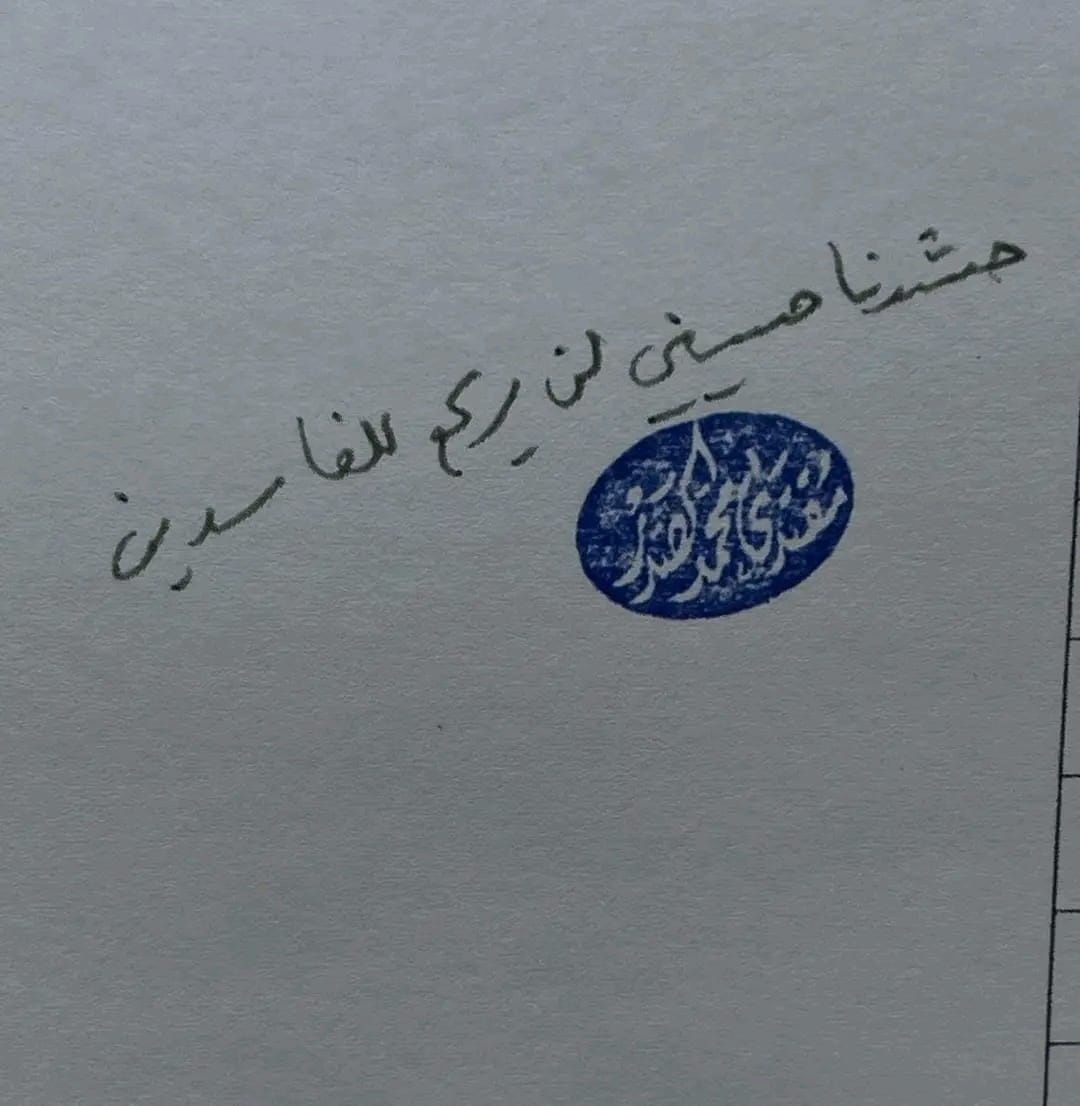 حشدنا حسيني لن يركع للفاسدين
مقتدى محمد الصدر